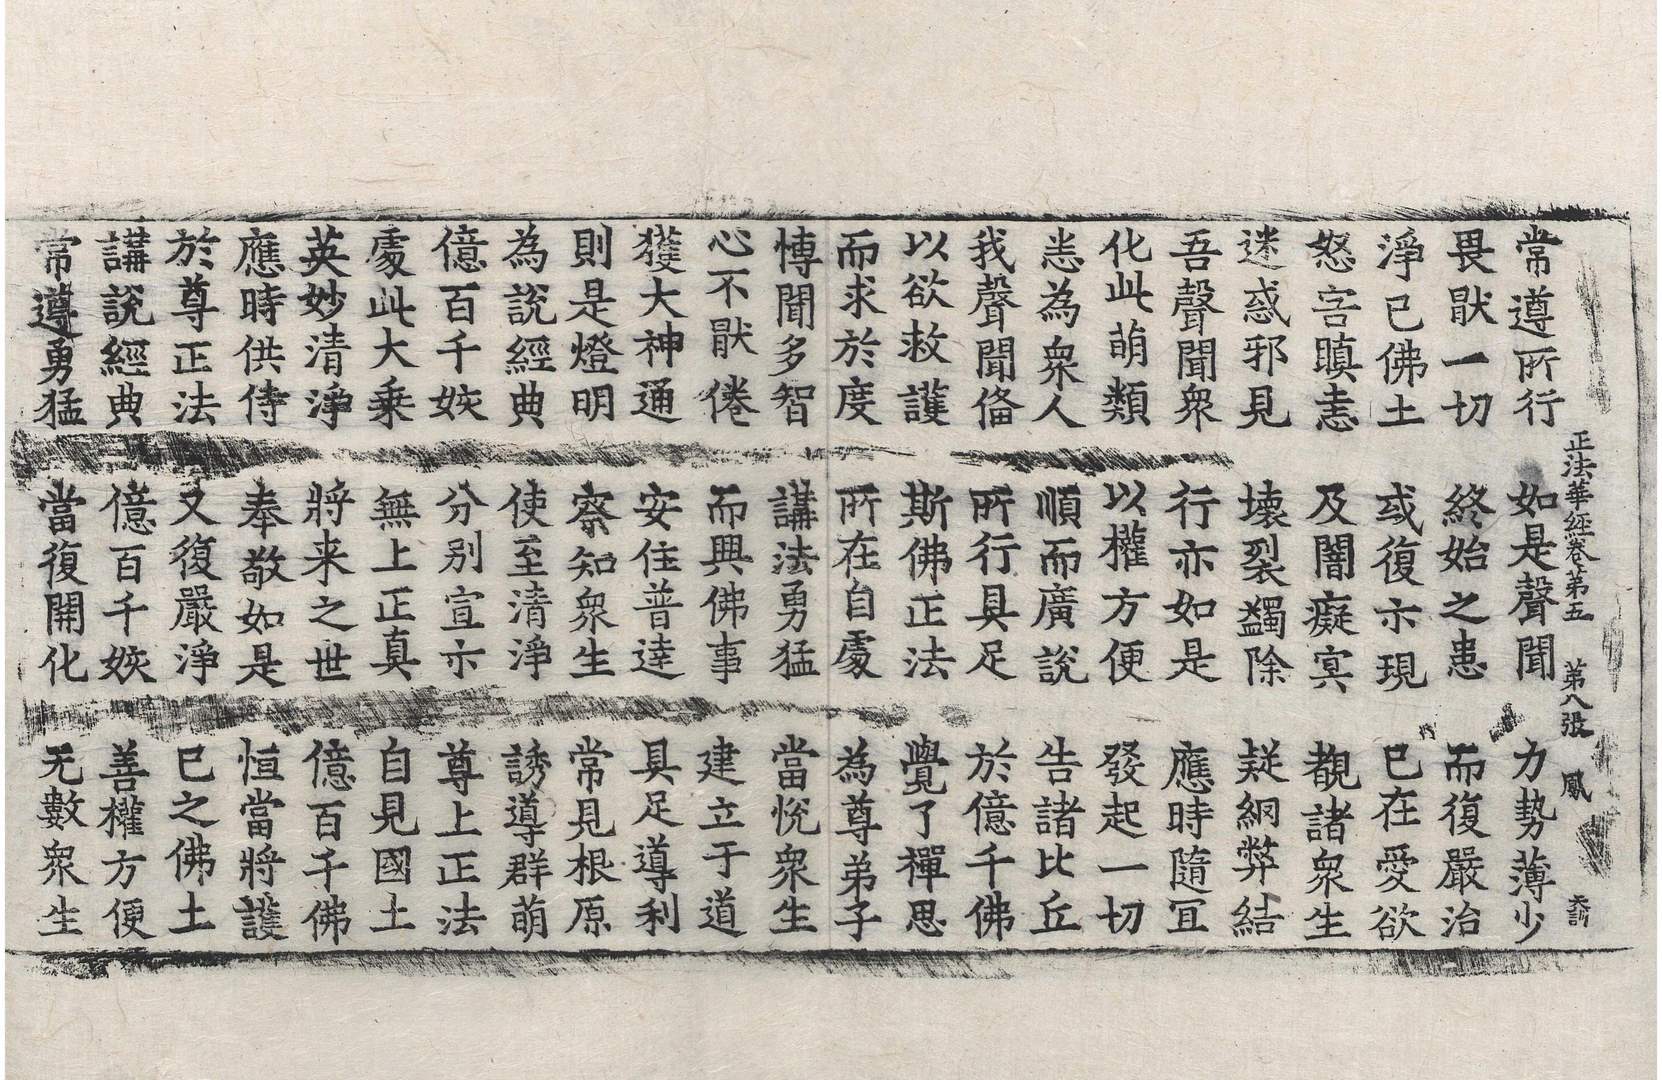 正法華經卷第五 第八張 鳳 天訓
常遵所行 如是聲聞 力勢薄少
畏猒一切 終始之患 而復嚴治
淨已佛土 或復亦現 已在愛欲
怒害瞋恚 及闇癡冥 覩諸衆生
迷惑邪見 壞裂蠲除 疑網弊結
吾聲聞衆 行亦如是 應時隨宜
化此萌類 以權方便 發起一切
恚為衆人 順而廣說 告諸比丘
我聲聞俻 所行具足 於億千佛
以欲救護 斯佛正法 覺了禪思
而求於度 所在自處 為尊弟子
博聞多智 講法勇猛 當悅衆生
心不猒倦 而興佛事 建立于道
獲大神通 安住普達 具足導利
則是燈明 察知衆生 常見根原
為說經典 使至清淨 誘導群萌
億百千姟 分别宣亦 尊上正法
處此大乘 無上正真 自見國土
英妙清淨 將来之世 億百千佛
應時供侍 奉敬如是 恒當將護
於尊正法 又復嚴淨 已之佛土
講說經典 億百千姟 善權方便
常遵勇猛 當復開化 无數衆生